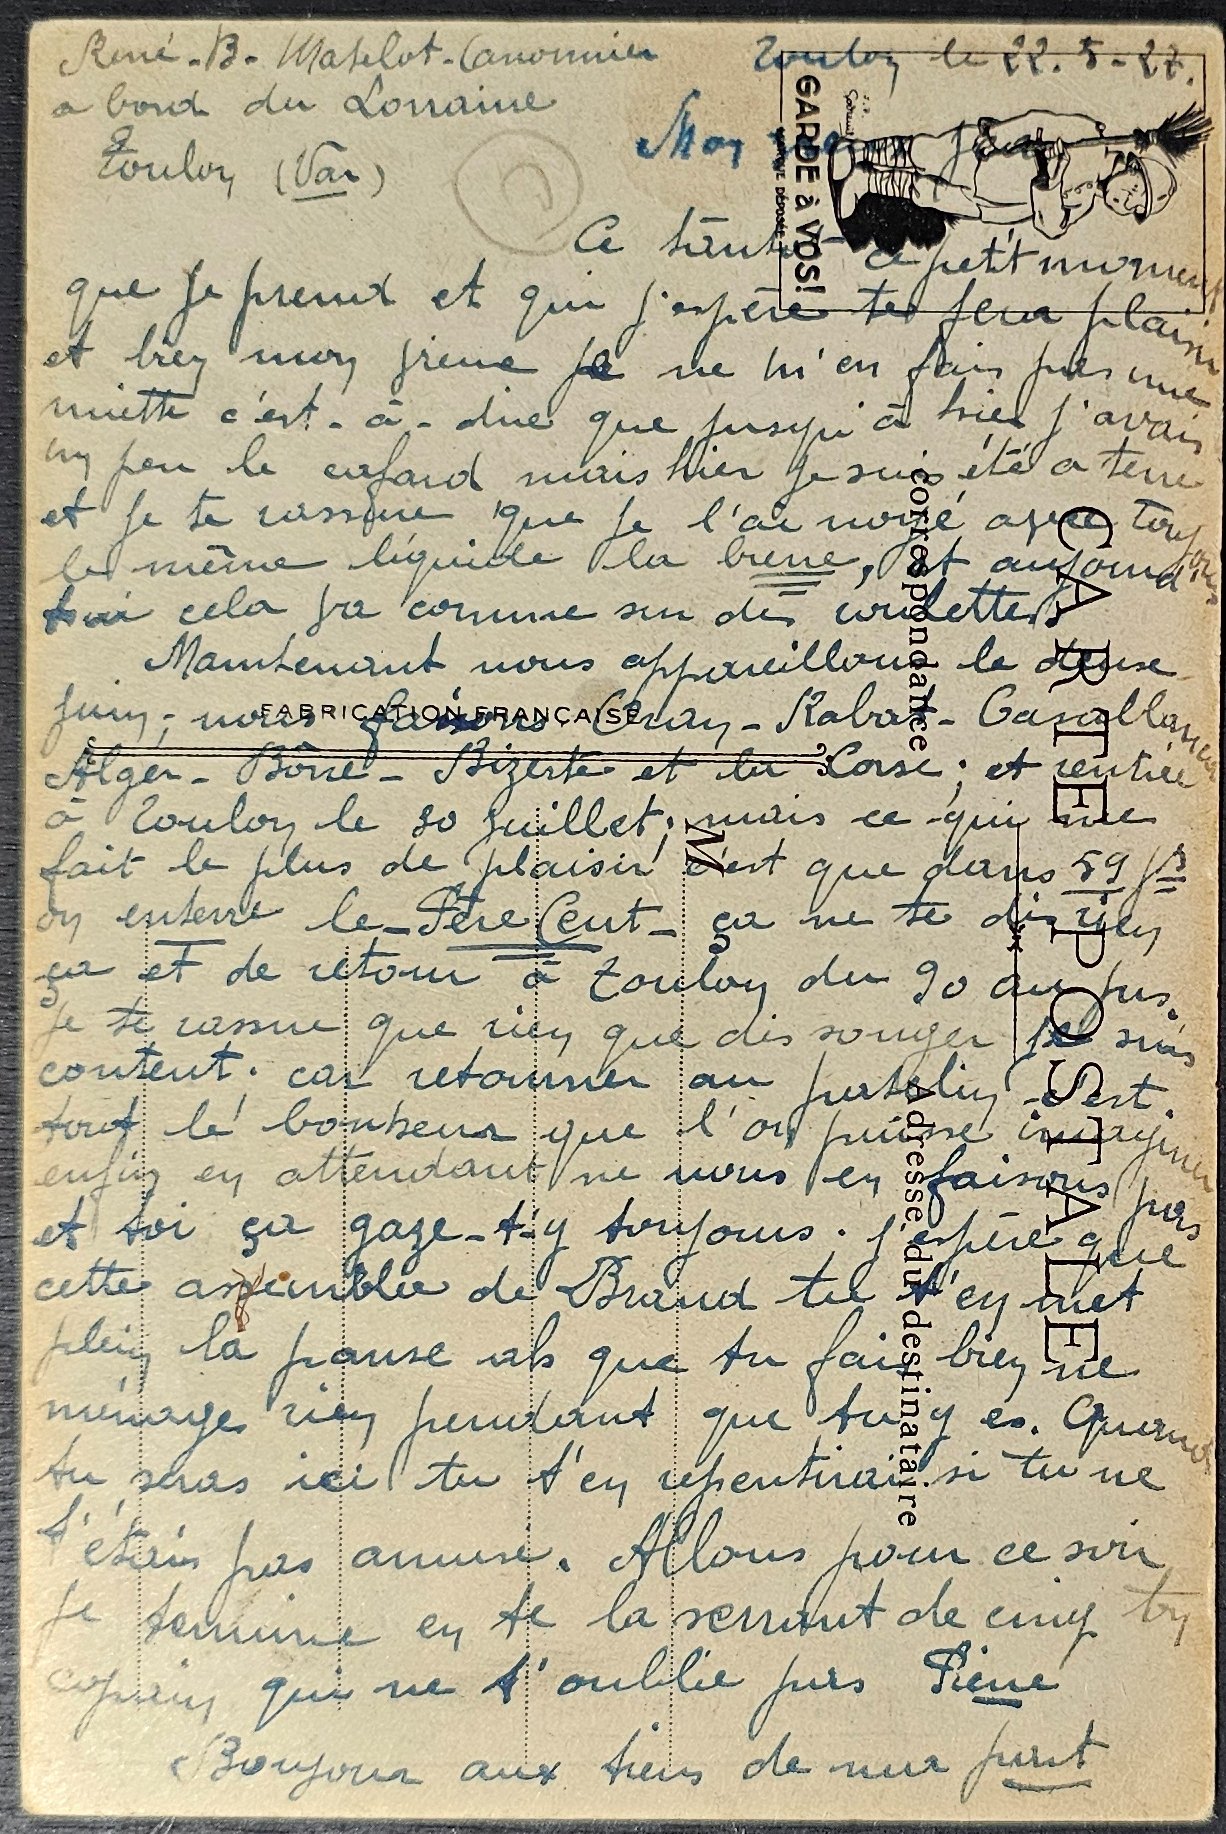 René-B- Matelot-Canonnier
a bord du Lorraine
à
Toulon (Var)
Toulon le 22. 5-27.
Mon
Ce petit moment
que je prend et qui j'espère te fera plaisir
et bien mon frene je ne m'en fais pas une
miette c'est-à-dire que jusqu'à hier j'avais
un peu le cafard mais hier je suis été a terre
et je te rassure que je l'ai noyé avec toujours
le même liquide la biere, et aujourd'
hui cela va comme sur des roulettes
Maintenant nous appareillons le deuse
juin; nous faisons Oran-Rabat-Casablanca
Alger-Bône-Bizerte et la Corse; et rentrée
à Toulon le 30 juillet; mais ce qui me
fait le plus de plaisir c'est que dans 59 jrs
on enterre le-Père Cent- ça ne te dis rien
ça et de retour à Toulon du 90 au jus.
Je te rassure que rien que dis songer je suis
content. car retourner au patelin c'est.
tout le bonheur que l'on puisse imaginer
enfin en attendant ne nous en faisons pas
et toi ça gaze-t-y toujours. j'espère que
cette assemblée de Brand tu t'en met
plein la panse als que tu fais bien ne
ménages rien pendant que tu y es. Quand
tu seras ici tu t'en repentirais si tu ne
t'étais pas amusé. Allons pour ce soir
je termine en te la serrant de cinq ton
copain qui ne t'oublie pas
Bonjour aux tiens de ma part
GARDE à VOS!
MARQUE DÉPOSÉE
CARTE POSTALE
Correspondance
Adresse du destinataire
FABRICATION FRANÇAISE
M